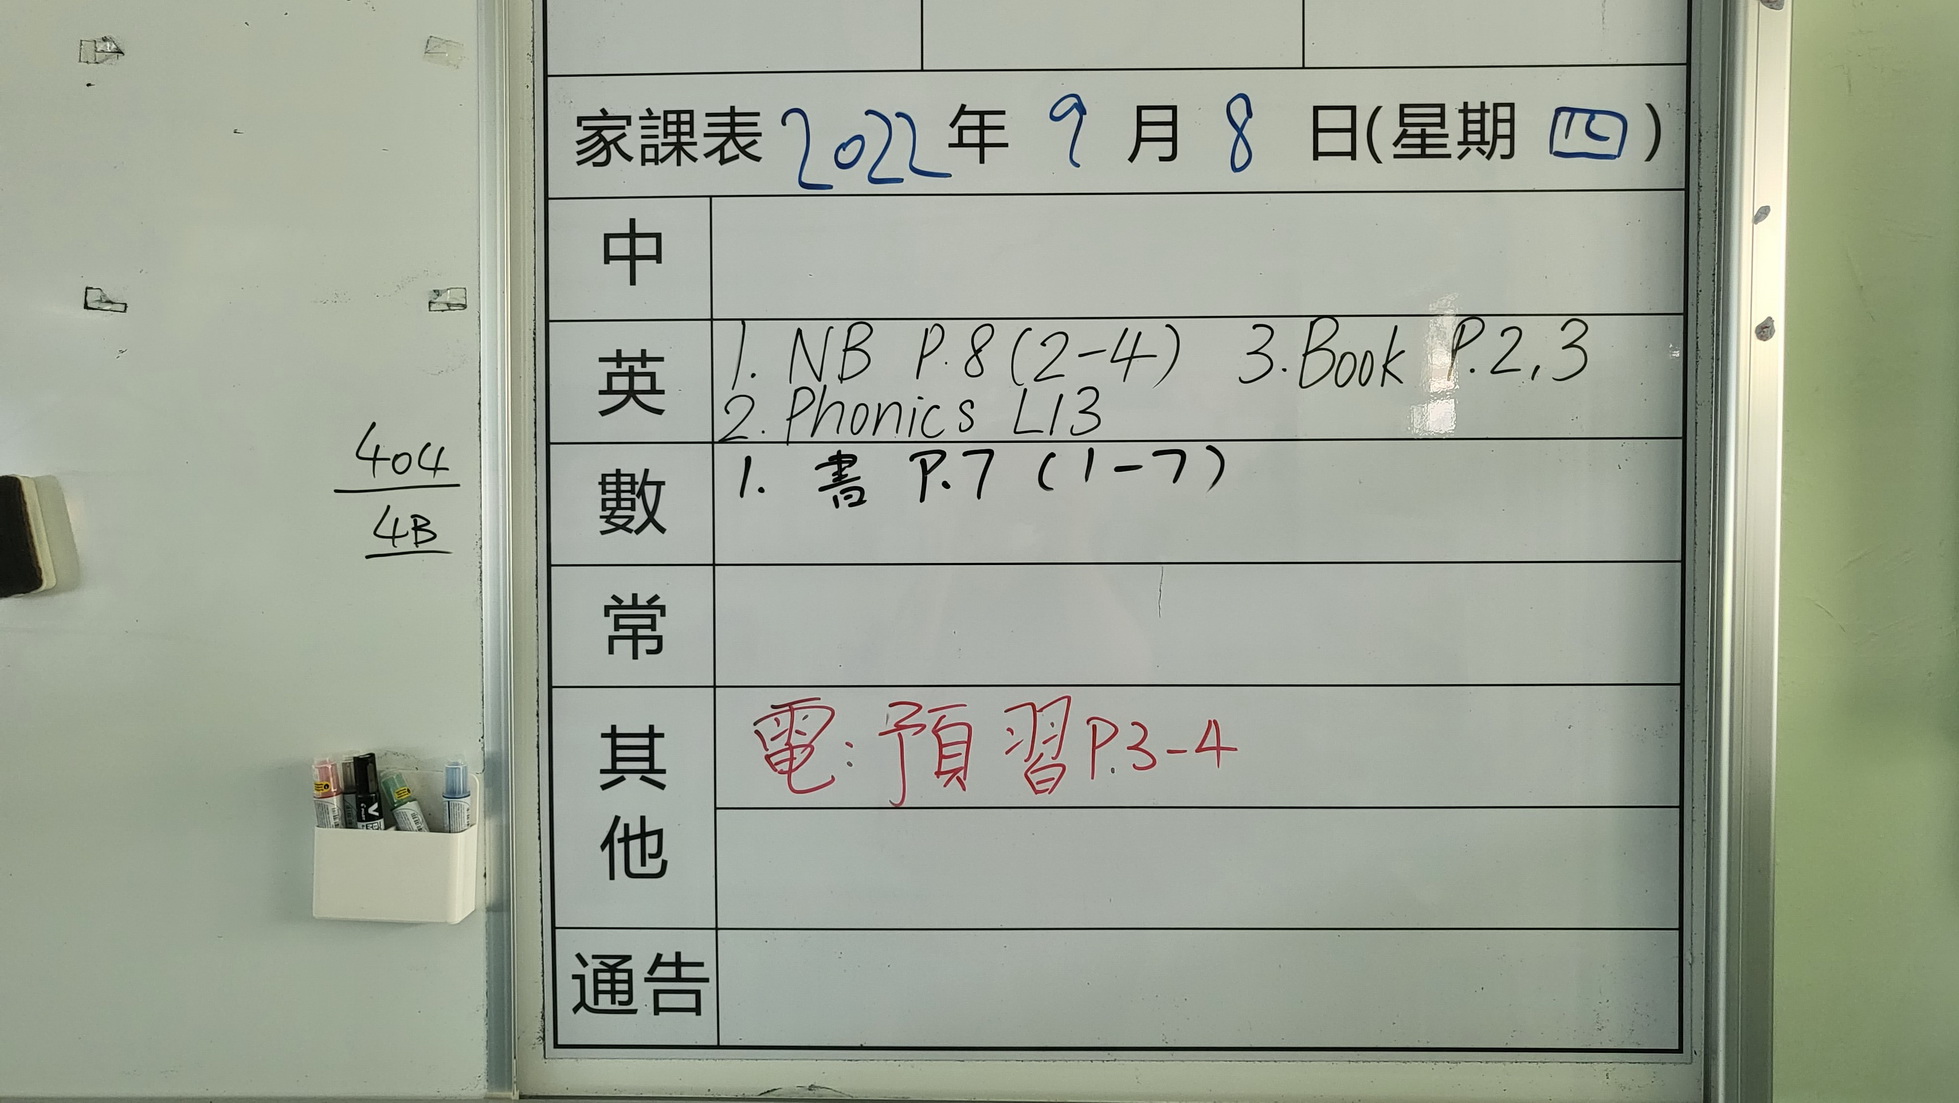 家課表 2022 年 9 月 8 日(星期 四)
中
英
1. NB P.8 (2-4) 3. Book P.2,3
2. Phonics L13
數
1. 書 P.7 (1-7)
常
其他
電:預習P.3-4
通告
404
4B